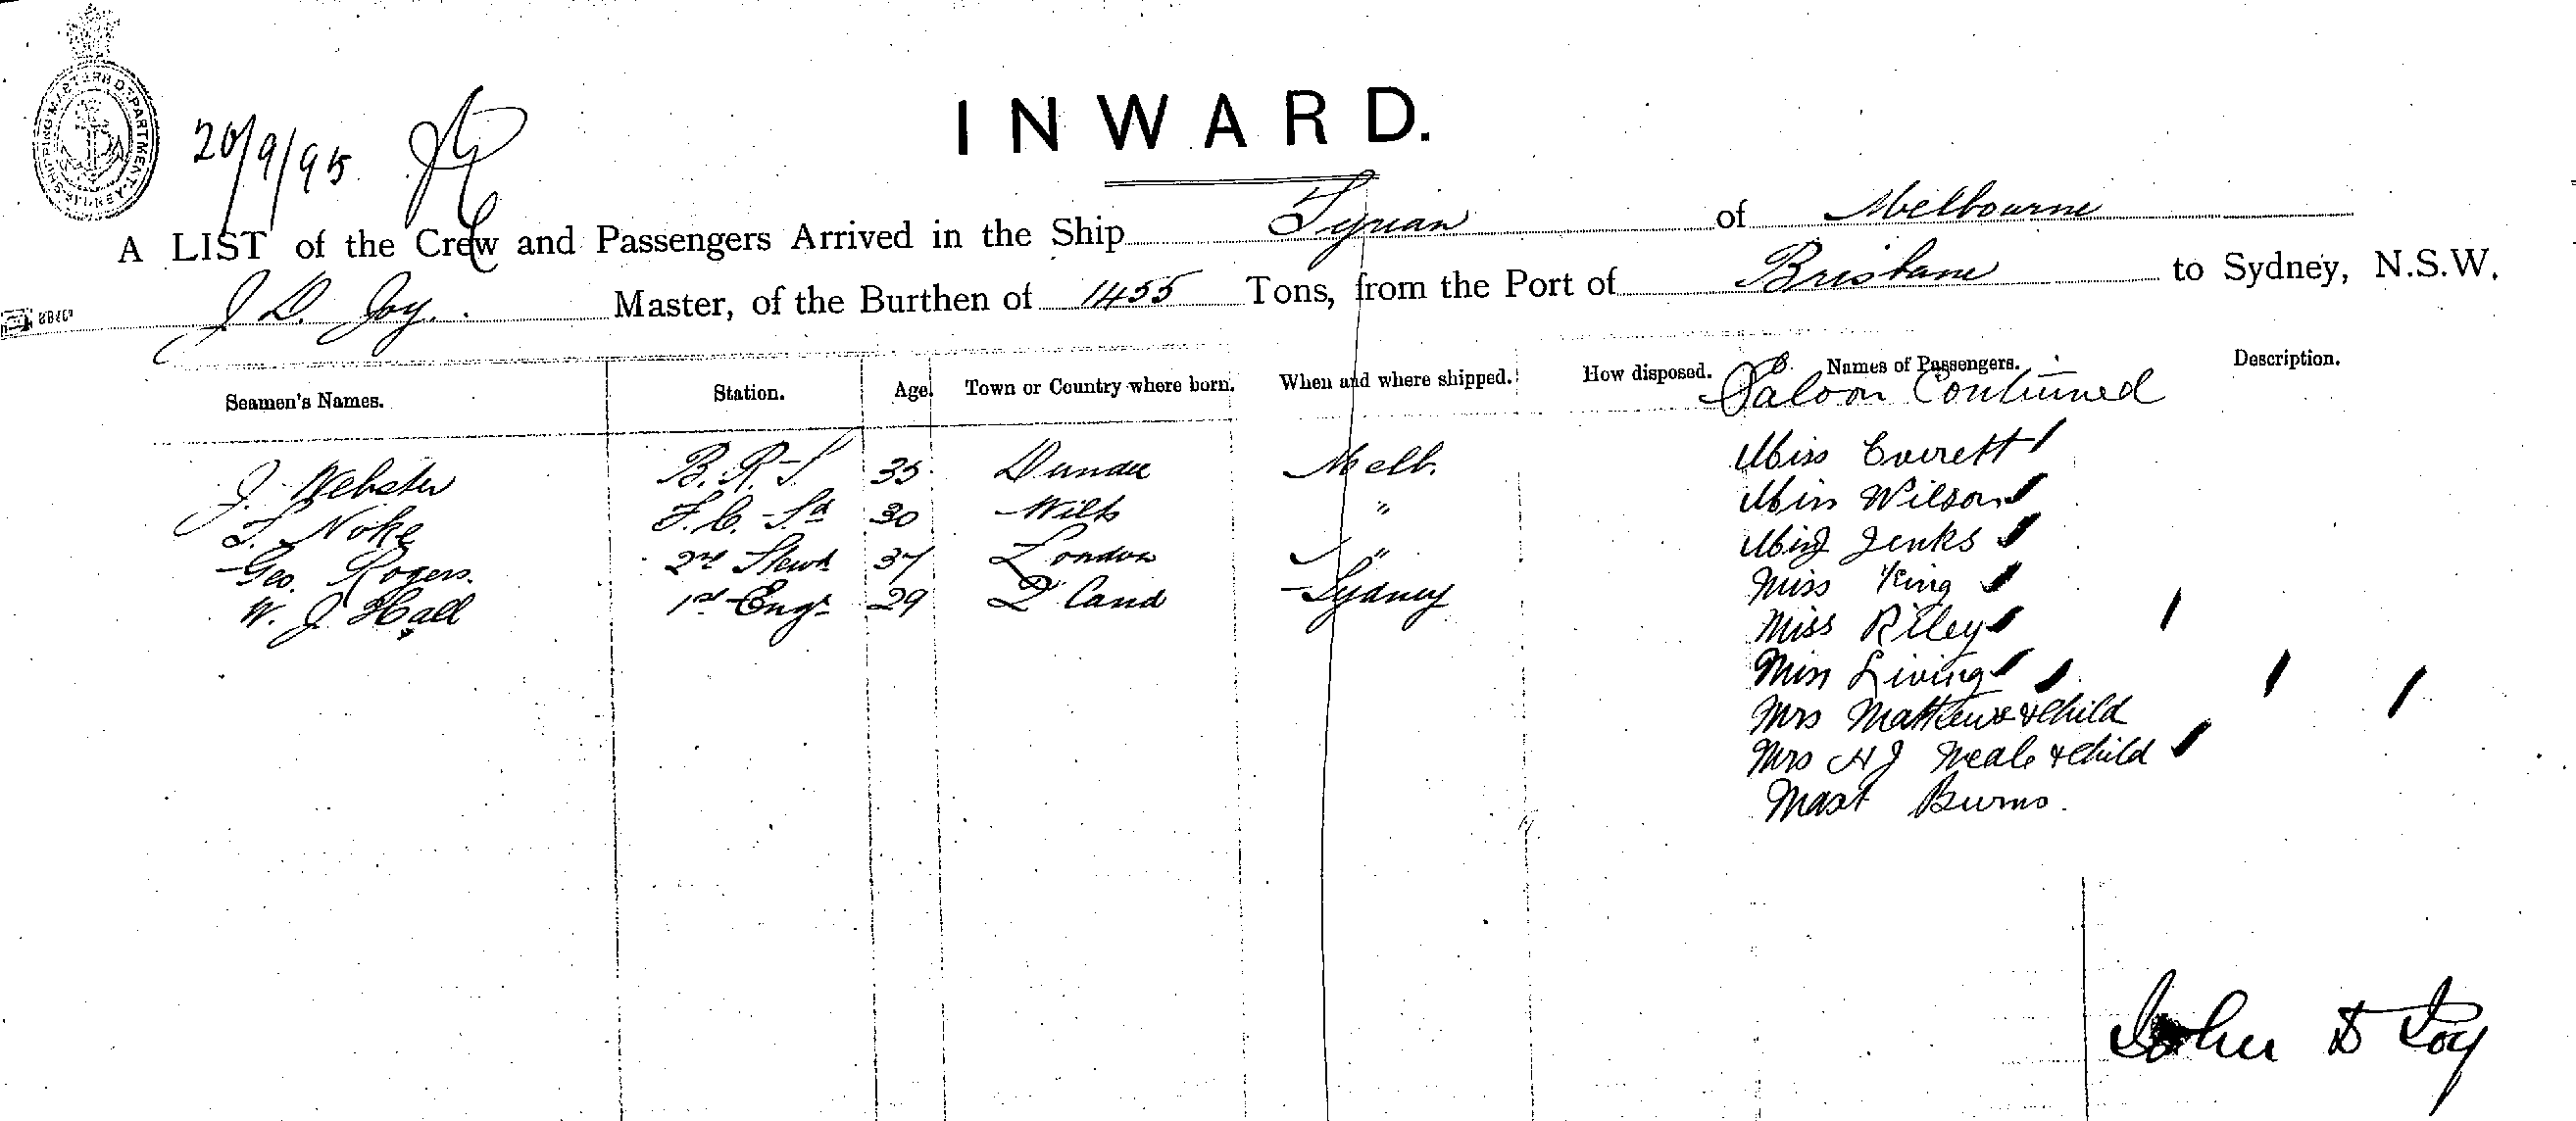 SHIPPING MASTERS DEPARTMENT SYDNEY
20/9/95
INWARD.
A LIST of the Crew and Passengers Arrived in the Ship Tyrian of Melbourne
J D. Joy. Master, of the Burthen of 1455 Tons, from the Port of Brisbane to Sydney, N.S.W.
Seamen's Names. Station. Age. Town or Country where born. When and where shipped. How disposed. Names of Passengers. Description.
Saloon Continued
J. Webster B. R. S 35 Dundee Melb. Miss Everett
T. Noke F. C. Sd 30 Wilts " Miss Wilson
Geo. Rogers. 2nd Stewd 37 London " Miss Jenks
W. J. Hall 1st Engr 29 Q Land Sydney Miss King
Miss Riley
Miss Living
Mrs Mathews & Child
Mrs H J Neale & Child
Mast Burns.
John D Joy